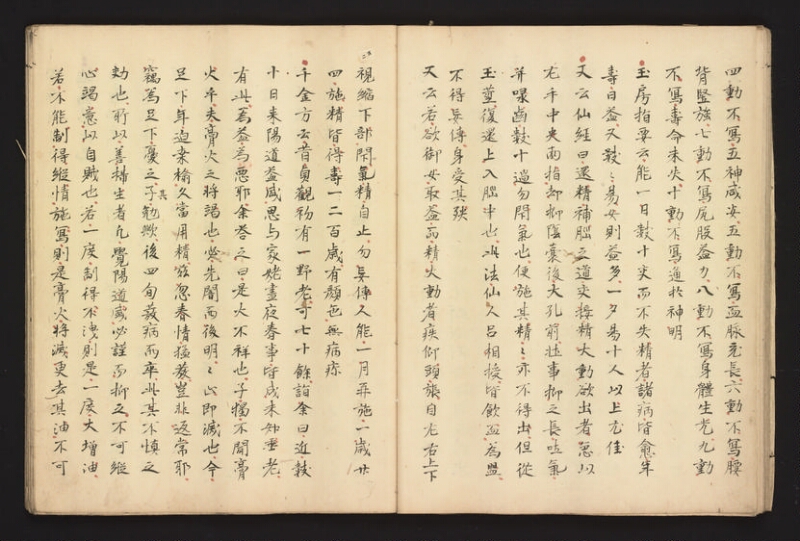 四動不寫五神咸安五動不寫血脉充長六動不寫腰
背堅強七動不寫尻股益力八動不寫身體生光九動
不寫壽命未失十動不寫通於神明
玉房指要云能一日數十交而不失精者諸病皆愈年
壽日益又數々易女則益多一夕易十人以上尤佳
又云仙經曰還精補腦之道交接精大動欲出者急以
左手中央兩指却抑陰囊後大孔前壯事抑之長吐氣
并喙齒數十過勿閇氣也便施其精々亦不得出但從
玉莖復還上入腦中也此法仙人呂相授皆飲血為盟
不得妄傳身受其殃
又云若欲御女取益而精大動者疾仰頭張目左右上下
視縮下部閇氣精自止勿妄傳人能一月再施一歲廿
四施精皆得壽一二百歲有顏色無病疹
千金方云昔貞觀初有一野老可七十餘詣余曰近數
十日來陽道益盛思与家姥晝夜春事皆成未知垂老
有此為益為惡耶余答之曰是大不祥也子獨不聞膏
火乎夫膏火之將竭也必先闇而後明々止即滅也今
足下年迫桒榆久當用精欲忽春情猛發豈非返常耶
竊為足下憂之子其勉歟後四旬發病而卒此其不慎之
効也所以善攝生者凡覺陽道盛必謹而抑之不可縱
心竭意以自賊也若一度制得不洩則是一度大增油
若不能制得縱情施寫則是膏火將滅更去其油不可